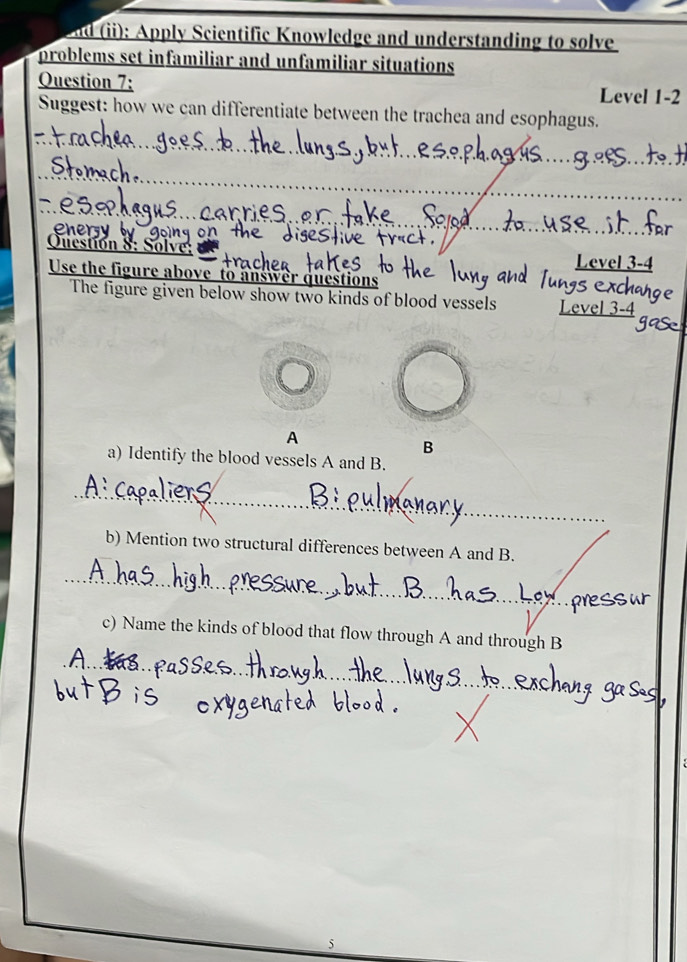 nd (ii): Apply Scientific Knowledge and understanding to solve
problems set infamiliar and unfamiliar situations
Question 7:
Level 1-2
Suggest: how we can differentiate between the trachea and esophagus.
- trachea goes to the lungs, but esophagus goes to th
Stomach.
- esophagus carries or take food to use it for
energy by going on the digestive tract.
Question 8: Solve:
- trachea takes to the lung and lungs exchange
gases
Level 3-4
Use the figure above to answer questions
The figure given below show two kinds of blood vessels
Level 3-4
A
B
a) Identify the blood vessels A and B.
A: capaliers B: pulmanary
b) Mention two structural differences between A and B.
A has high pressure, but B has Low pressur
c) Name the kinds of blood that flow through A and through B
A passes through the lungs to exchang gases,
but B is oxygenated blood.
5